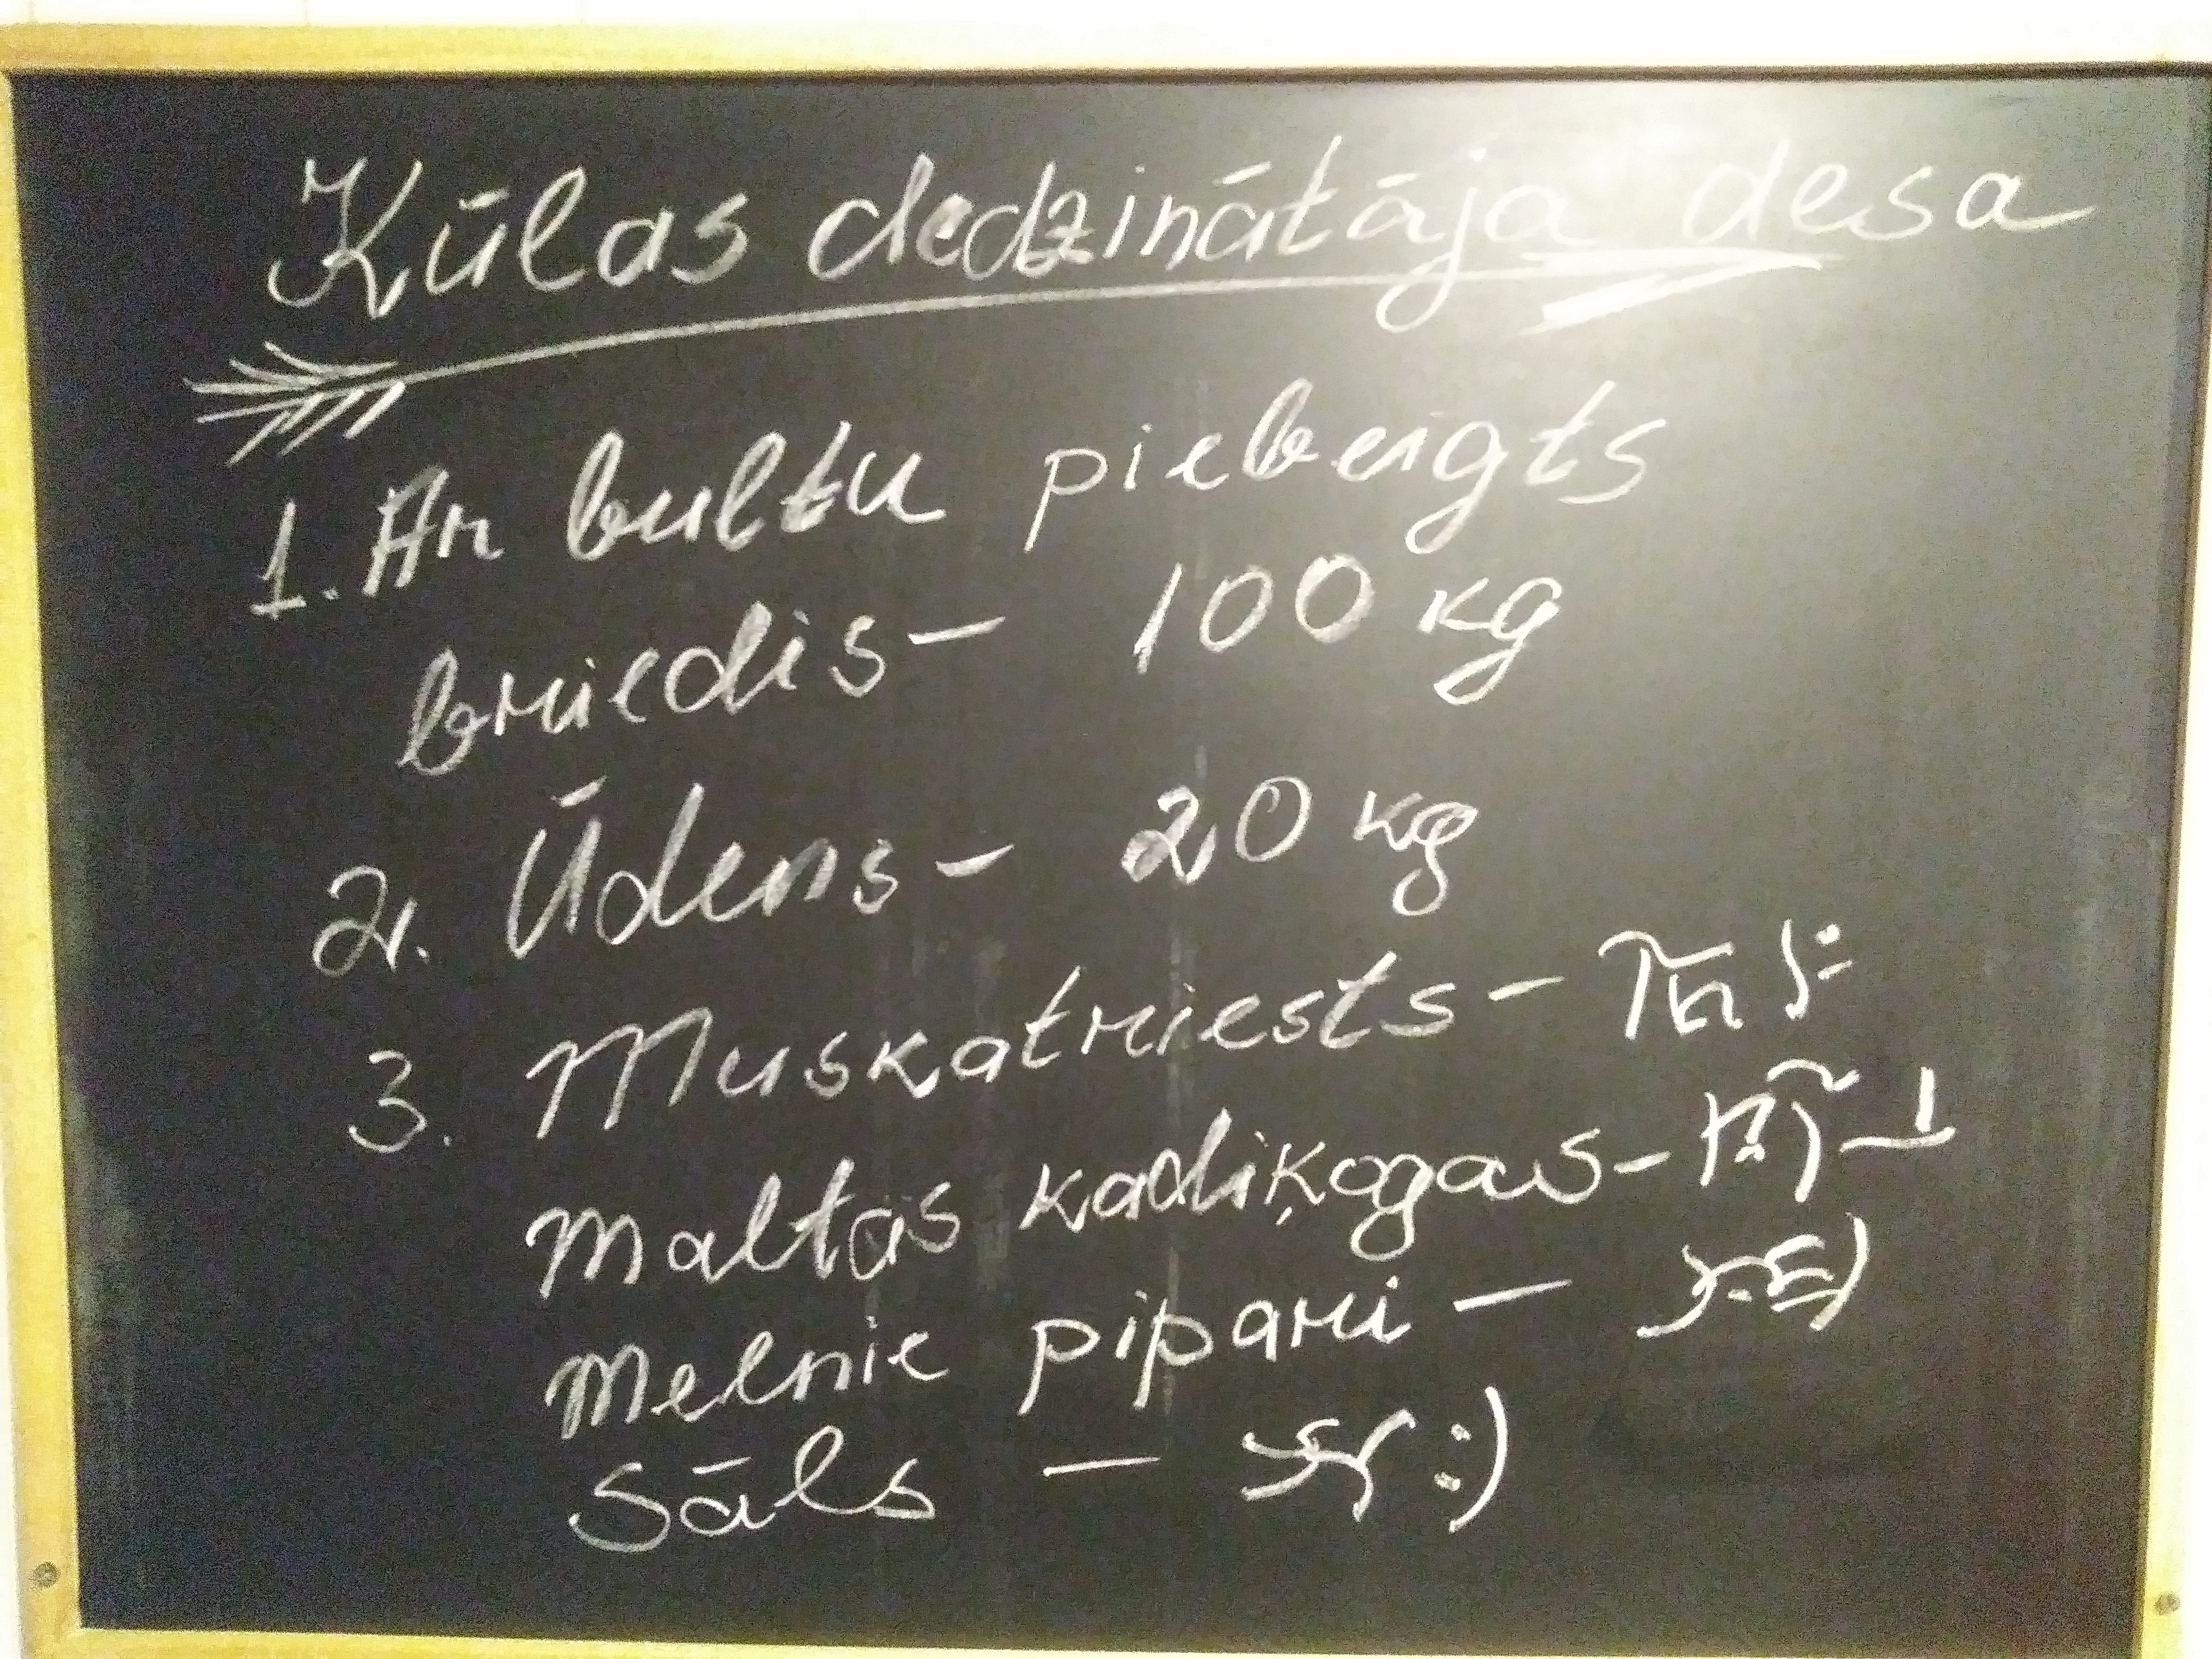 Kūlas dedzinātāja desa
1. Ar bultu piebeigts
briedis - 100 kg
2. Ūdens - 20 kg
3. Muskatriests -
Maltas kadiķogas -
Melnie pipari -
Sāls - :)